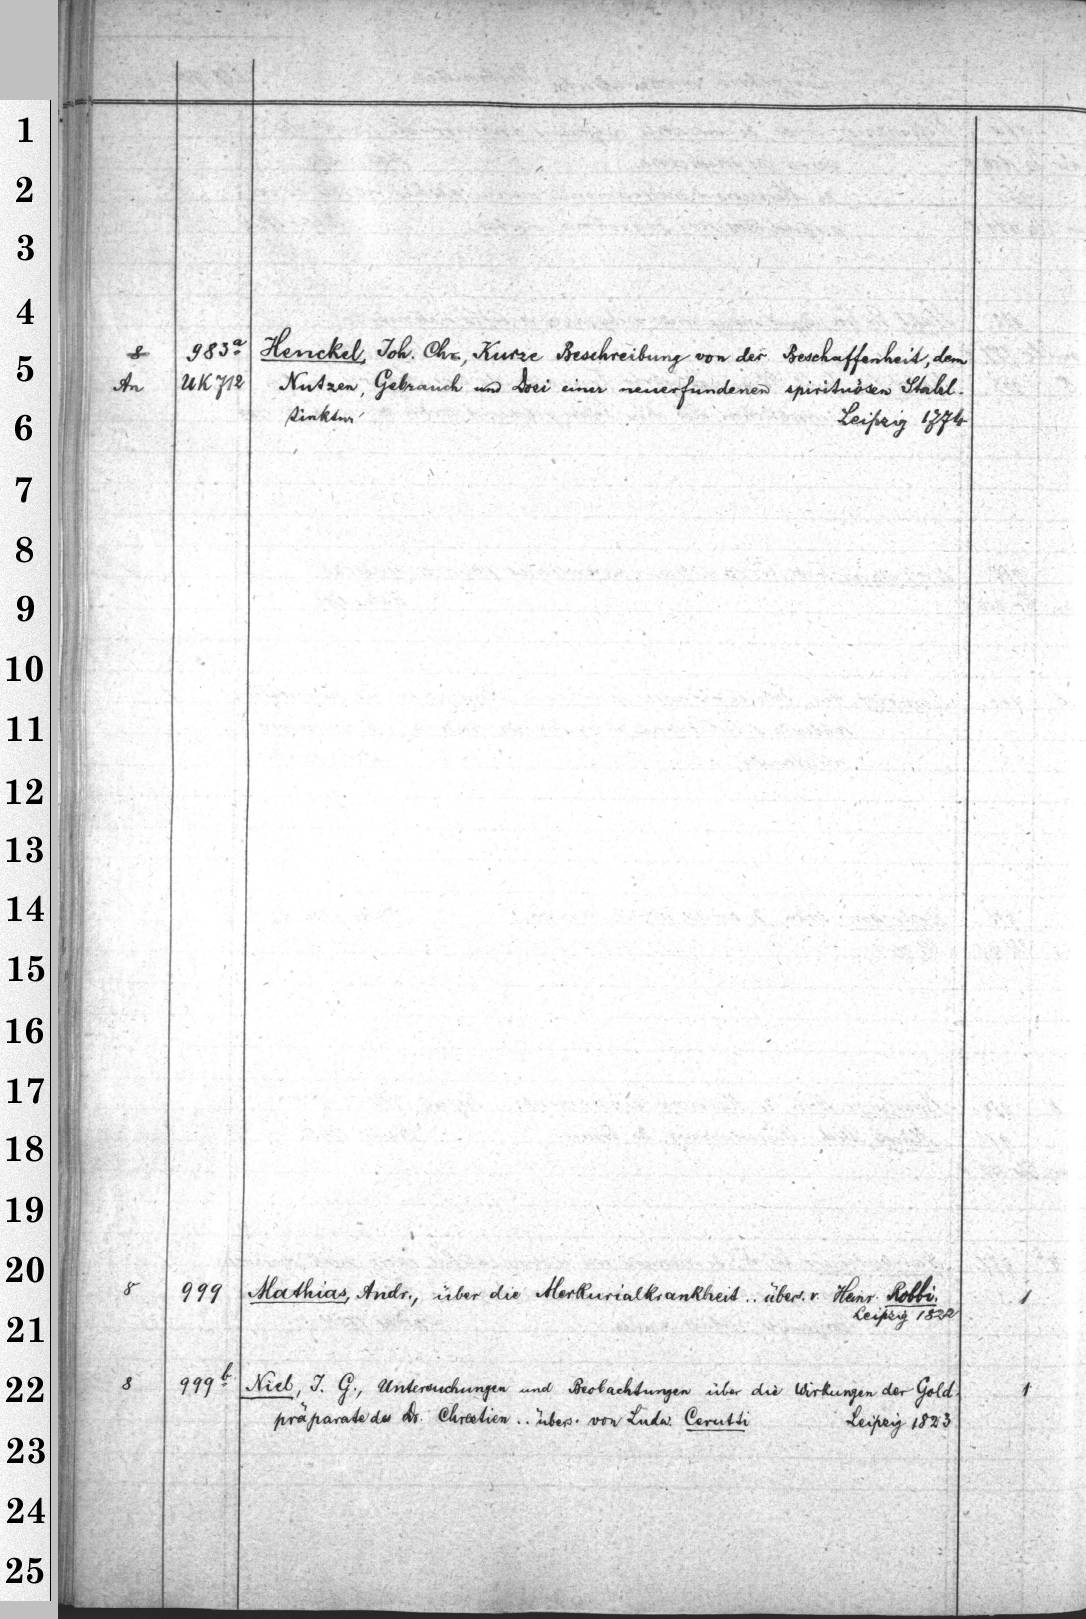 1
2
3
4
8 983a Henckel, Joh. Chr., Kurze Beschreibung von der Beschaffenheit, dem
5
An UK 712 Nutzen, Gebrauch und Dosi einer neuerfundenen spirituösen Stahl-
6
tinktur Leipzig 1774
7
8
9
10
11
12
13
14
15
16
17
18
19
20
8 999 Mathias, Andr., über die Merkurialkrankheit .. übers. v. Heinr. Robbi. 1
Leipzig 1822
21
22
8 999b Niel, J. G., Untersuchungen und Beobachtungen über die Wirkungen der Gold- 1
präparate des Dr. Chretien .. übers. von Ludw. Cerutti Leipzig 1823
23
24
25